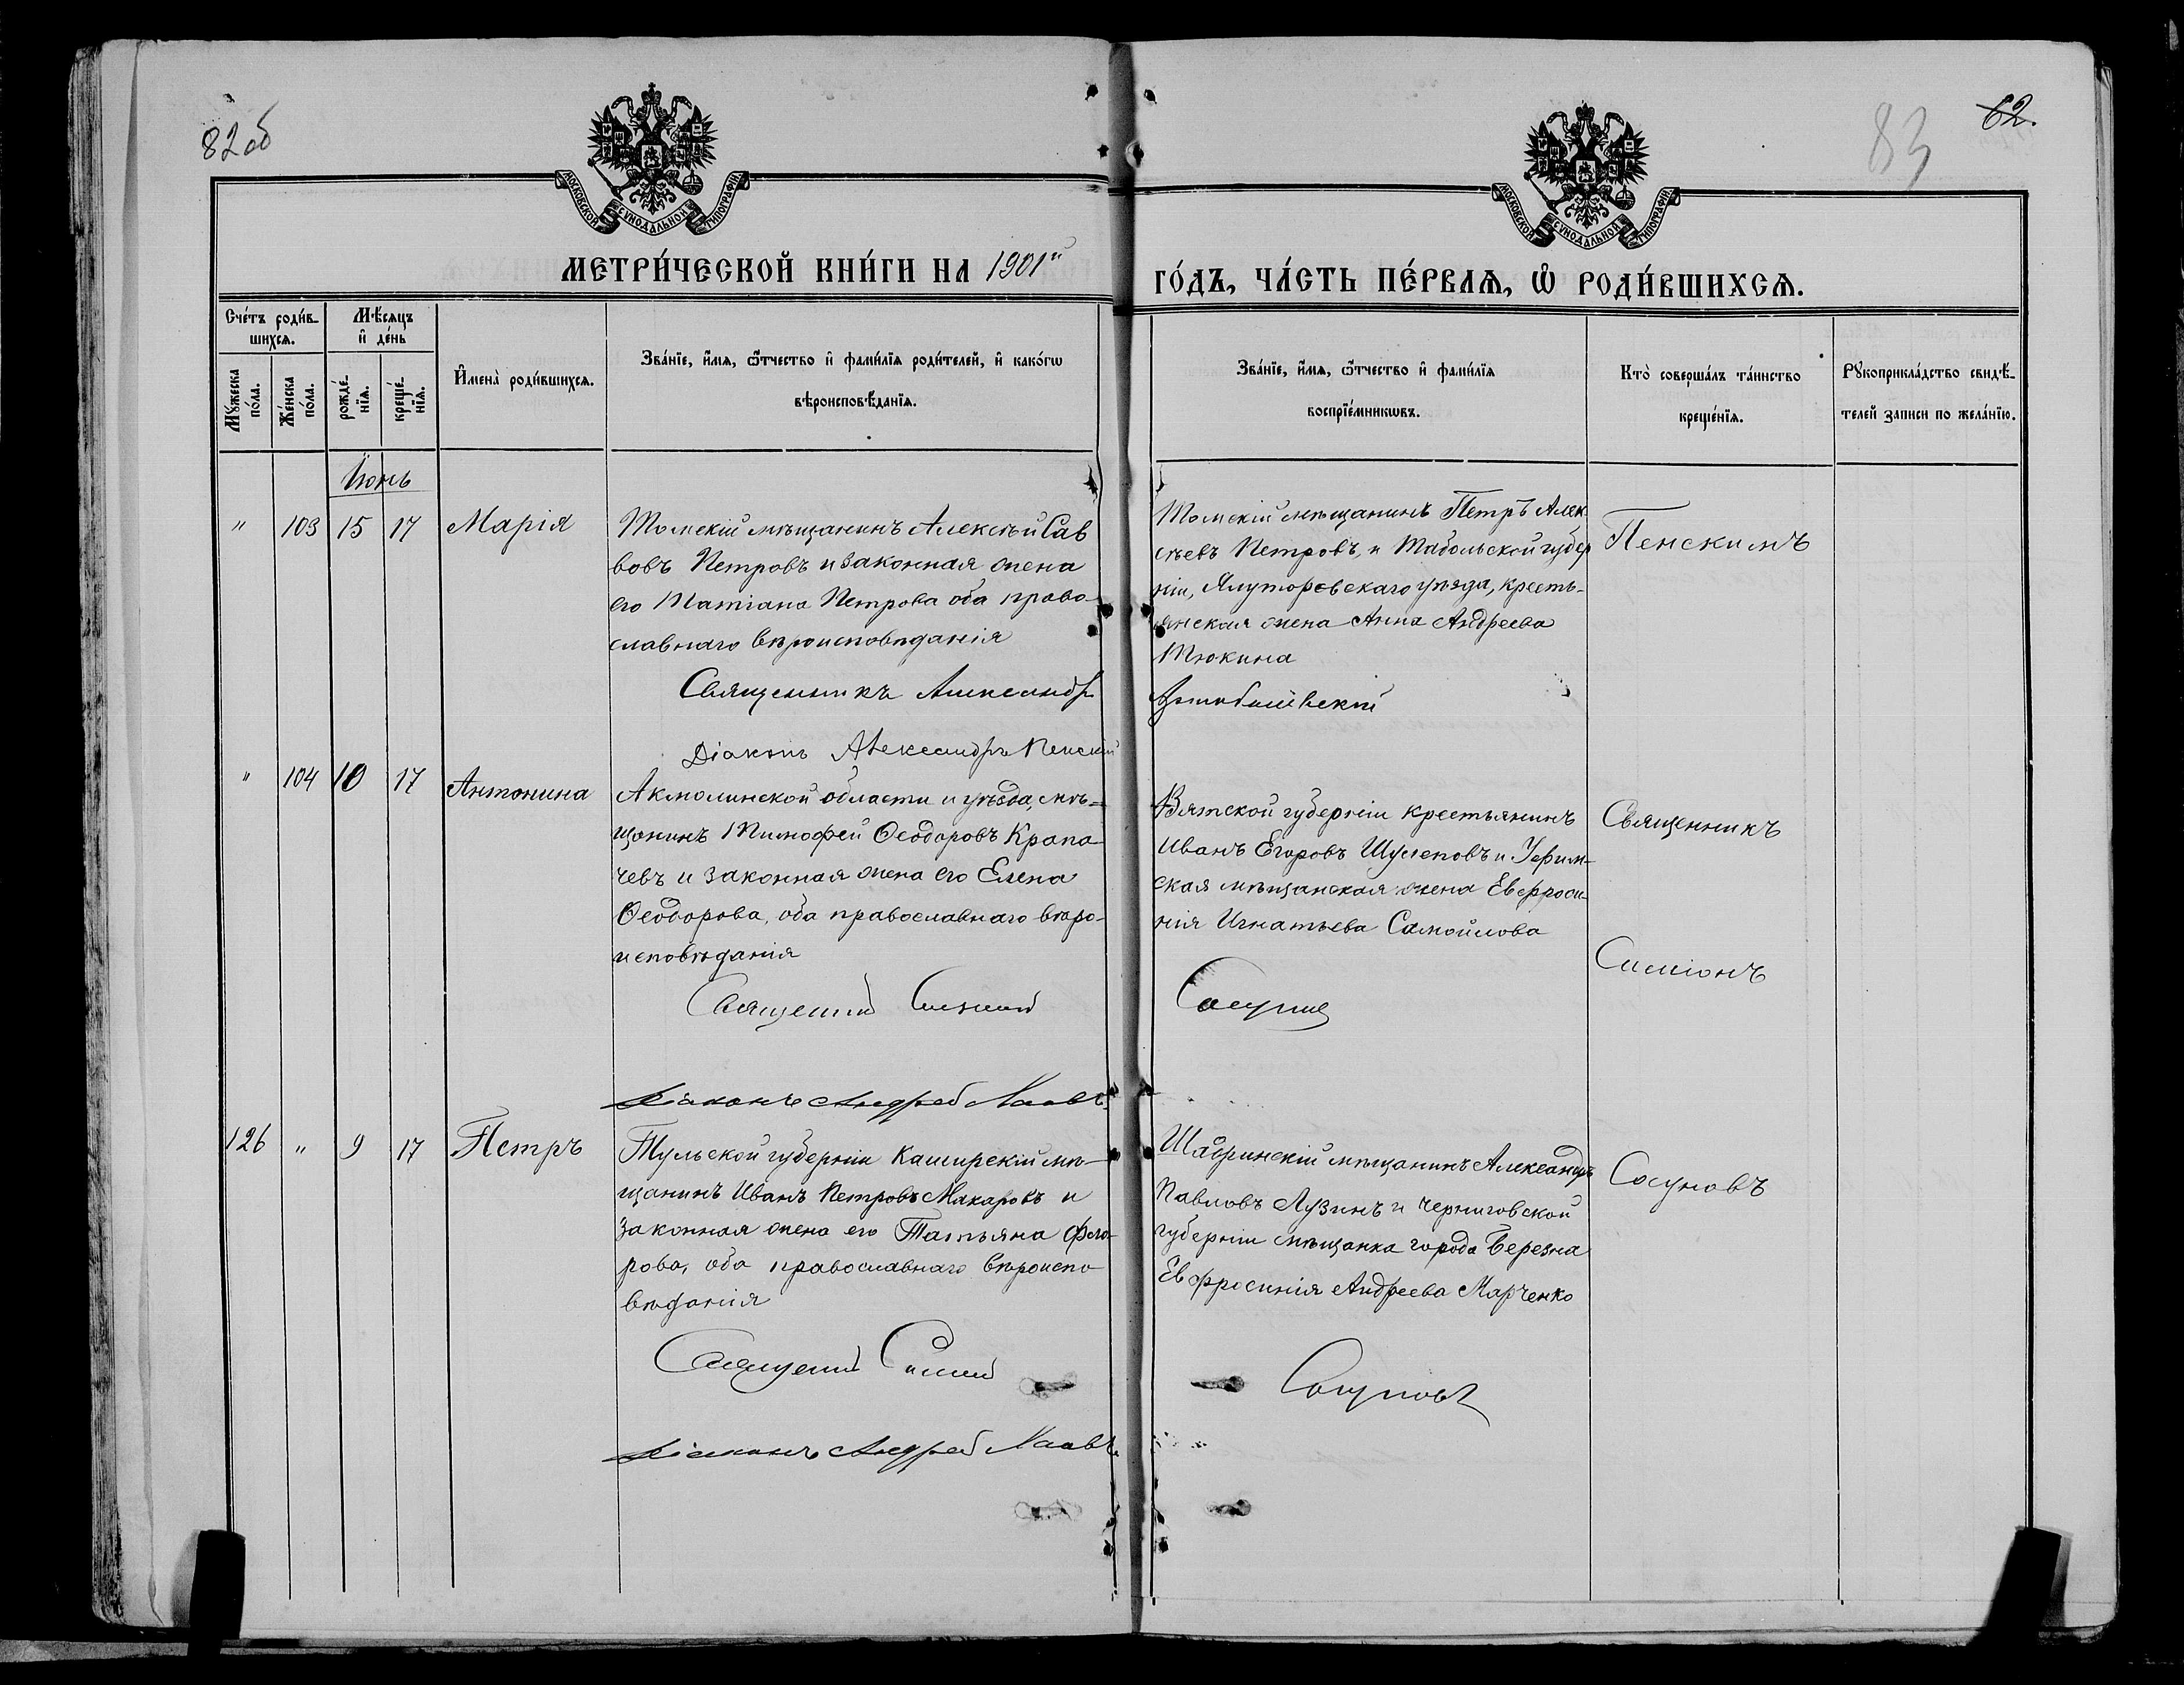 82об
83
62.
МОСКОВСКОЙ СѴНОДАЛЬНОЙ ТИПОГРАФІИ.
МОСКОВСКОЙ СѴНОДАЛЬНОЙ ТИПОГРАФІИ.
МЕТРИ́ЧЕСКОЙ КНИ́ГИ НА 1901й
ГО́ДЪ, ЧА́СТЬ ПЕ́РВАѦ, Ѽ РОДИ́ВШИХСѦ.
Сче́тъ роди́в-
шихсѧ.
Мꙋ́жеска
по́ла.
Же́нска
по́ла.
Мѣ́сяцъ
и҆ де́нь
рожде́-
нїѧ.
креще́-
нїѧ.
И҆мена̀ роди́вшихсѧ.
Зва́нїе, и҆́мѧ, ѻ҆́тчество и҆ фами́лїѧ роди́телей, и҆ како́гѡ
вѣроисповѣ́данїѧ.
Зва́нїе, и҆́мѧ, ѻ҆́тчество и҆ фами́лїѧ
воспрїе́мникѡвъ.
Кто̀ соверша́лъ та́инство
креще́нїѧ.
Рꙋкоприкла́дство свидѣ́-
телей записи по жела́нїю.
Іюнь
" 103 15 17 Марія
Томскій мѣщанинъ Алексѣй Сав
вовъ Петровъ и законная жена
его Татіана Петрова оба право-
славнаго вѣроисповѣданія
Священникъ Александръ
Діаконъ Александръ Пенскій
Томскій мѣщанинъ Петръ Алек
сѣевъ Петровъ и Тобольской губер
ніи, Ялуторовскаго уѣзда, кресть-
янская жена Анна Андреева
Тюкина
Пенскимъ
" 104 10 17 Антонина
Акмолинской области и уѣзда, мѣ-
щанинъ Тимофей Ѳеодоровъ Крапа-
чевъ и законная жена его Елена
Ѳеодорова, оба православнаго вѣро-
исповѣданія
Священникъ Симеонъ
Діаконъ Андрей
Вятской губерніи крестьянинъ
Иванъ Егоровъ Шулеповъ и Уфим-
ская мѣщанская жена Евфроси-
нія Игнатьева Самойлова
Сосуновъ
Священникъ
Симеонъ
126 " 9 17 Петръ
Тульской губерніи Каширскій мѣ-
щанинъ Иванъ Петровъ Макаровъ и
законная жена его Татьяна Фего-
рова, оба православнаго вѣроиспо
вѣданія
Священникъ Симеонъ
Діаконъ Андрей
Шадринскій мѣщанинъ Александръ
Павловъ Лузинъ и Черниговской
губерніи мѣщанка города Березна
Евфросинія Андреева Марченко
Сосуновъ
Сосуновъ